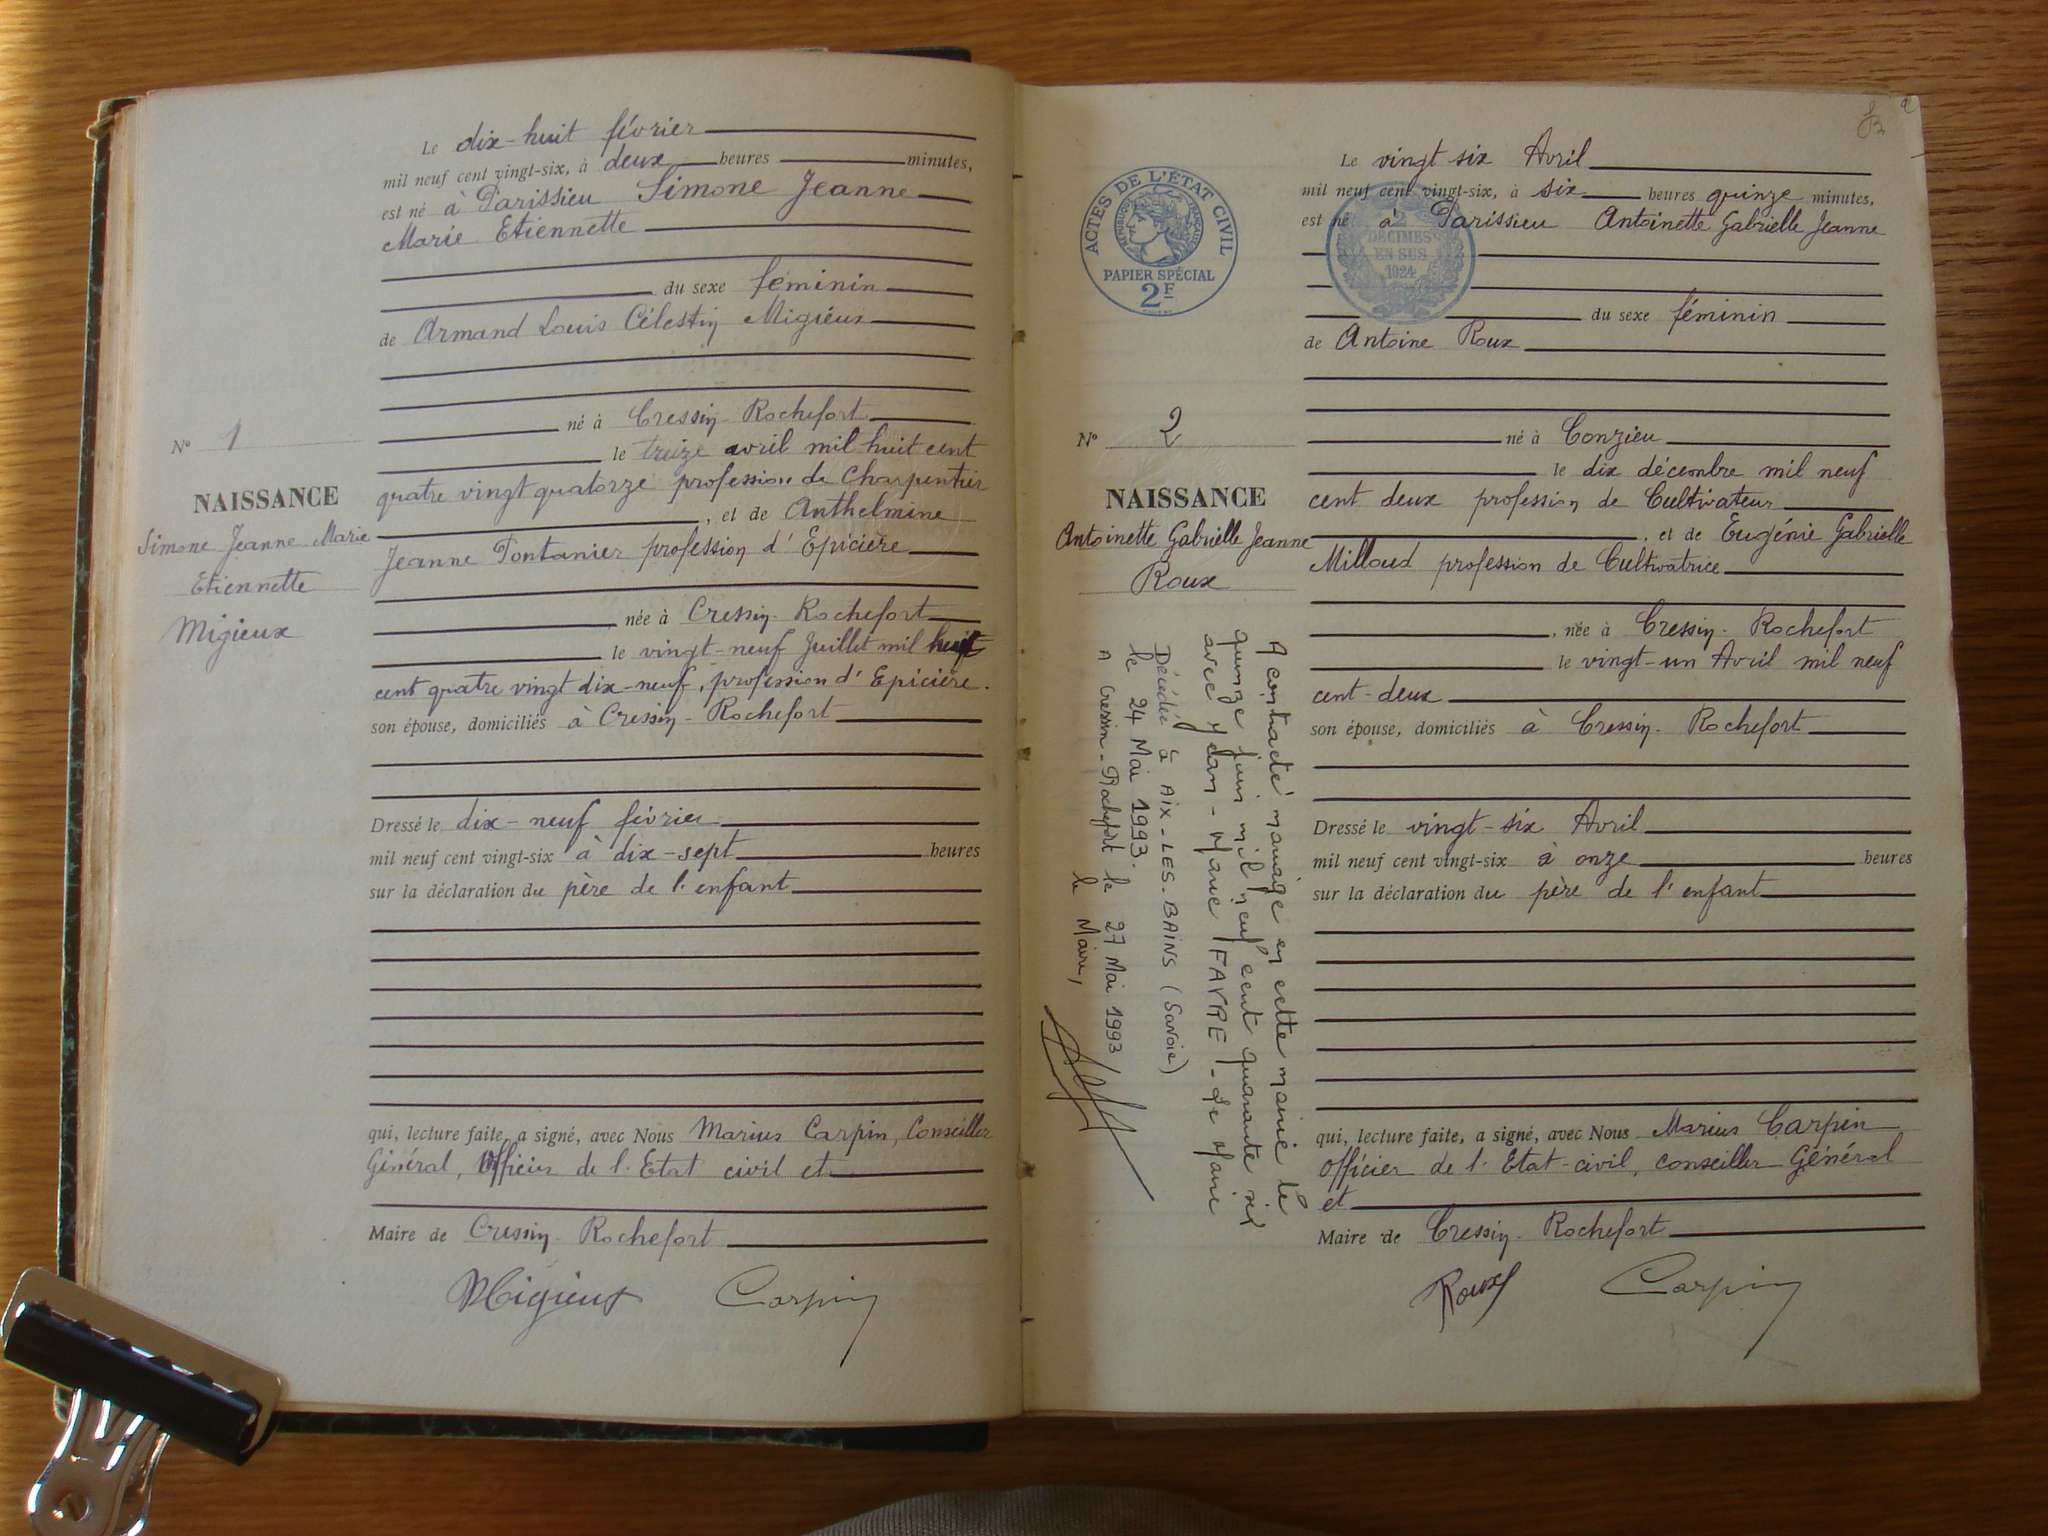 Le dix-huit février
mil neuf cent vingt-six, à deux heures minutes,
est né à Parissieu Simone Jeanne
Marie Etiennette
du sexe féminin
de Armand Louis Célestin Migieux
né à Cressin-Rochefort
le treize avril mil huit cent
quatre vingt quatorze profession de Charpentier
, et de Anthelmine
Jeanne Fontanier profession d'Epicière
née à Cressin-Rochefort
le vingt-neuf Juillet mil huit
cent quatre vingt dix-neuf, profession d'Epicière.
son épouse, domiciliés à Cressin-Rochefort
Dressé le dix-neuf février
mil neuf cent vingt-six à dix-sept heures
sur la déclaration du père de l'enfant
qui, lecture faite, a signé, avec Nous Marius Carpin, Conseiller
Général, Officier de l'Etat civil et
Maire de Cressin-Rochefort
Migieux Carpin
N° 1
NAISSANCE
Simone Jeanne Marie
Etiennette
Migieux
2
ACTES DE L'ÉTAT CIVIL
RÉPUBLIQUE FRANÇAISE
PAPIER SPÉCIAL
2F
2
DÉCIMES
EN SUS
1924
Le vingt six Avril
mil neuf cent vingt-six, à six heures quinze minutes,
est né à Parissieu Antoinette Gabrielle Jeanne
du sexe féminin
de Antoine Roux
né à Conzieu
le dix décembre mil neuf
cent deux profession de Cultivateur
, et de Eugénie Gabrielle
Milloud profession de Cultivatrice
, née à Cressin-Rochefort
le vingt-un Avril mil neuf
cent-deux
son épouse, domiciliés à Cressin-Rochefort
Dressé le vingt-six Avril
mil neuf cent vingt-six à onze heures
sur la déclaration du père de l'enfant
qui, lecture faite, a signé, avec Nous Marius Carpin
Officier de l'Etat-civil, conseiller Général
et
Maire de Cressin-Rochefort
Roux Carpin
N° 2
NAISSANCE
Antoinette Gabrielle Jeanne
Roux
A contracté mariage en cette mairie le
quinze juin mil neuf cent quarante six
avec Marie FAVRE - Le Maire
Décédée à AIX-LES-BAINS (Savoie)
le 24 Mai 1993.
A Cressin-Rochefort le 27 Mai 1993
le Maire,